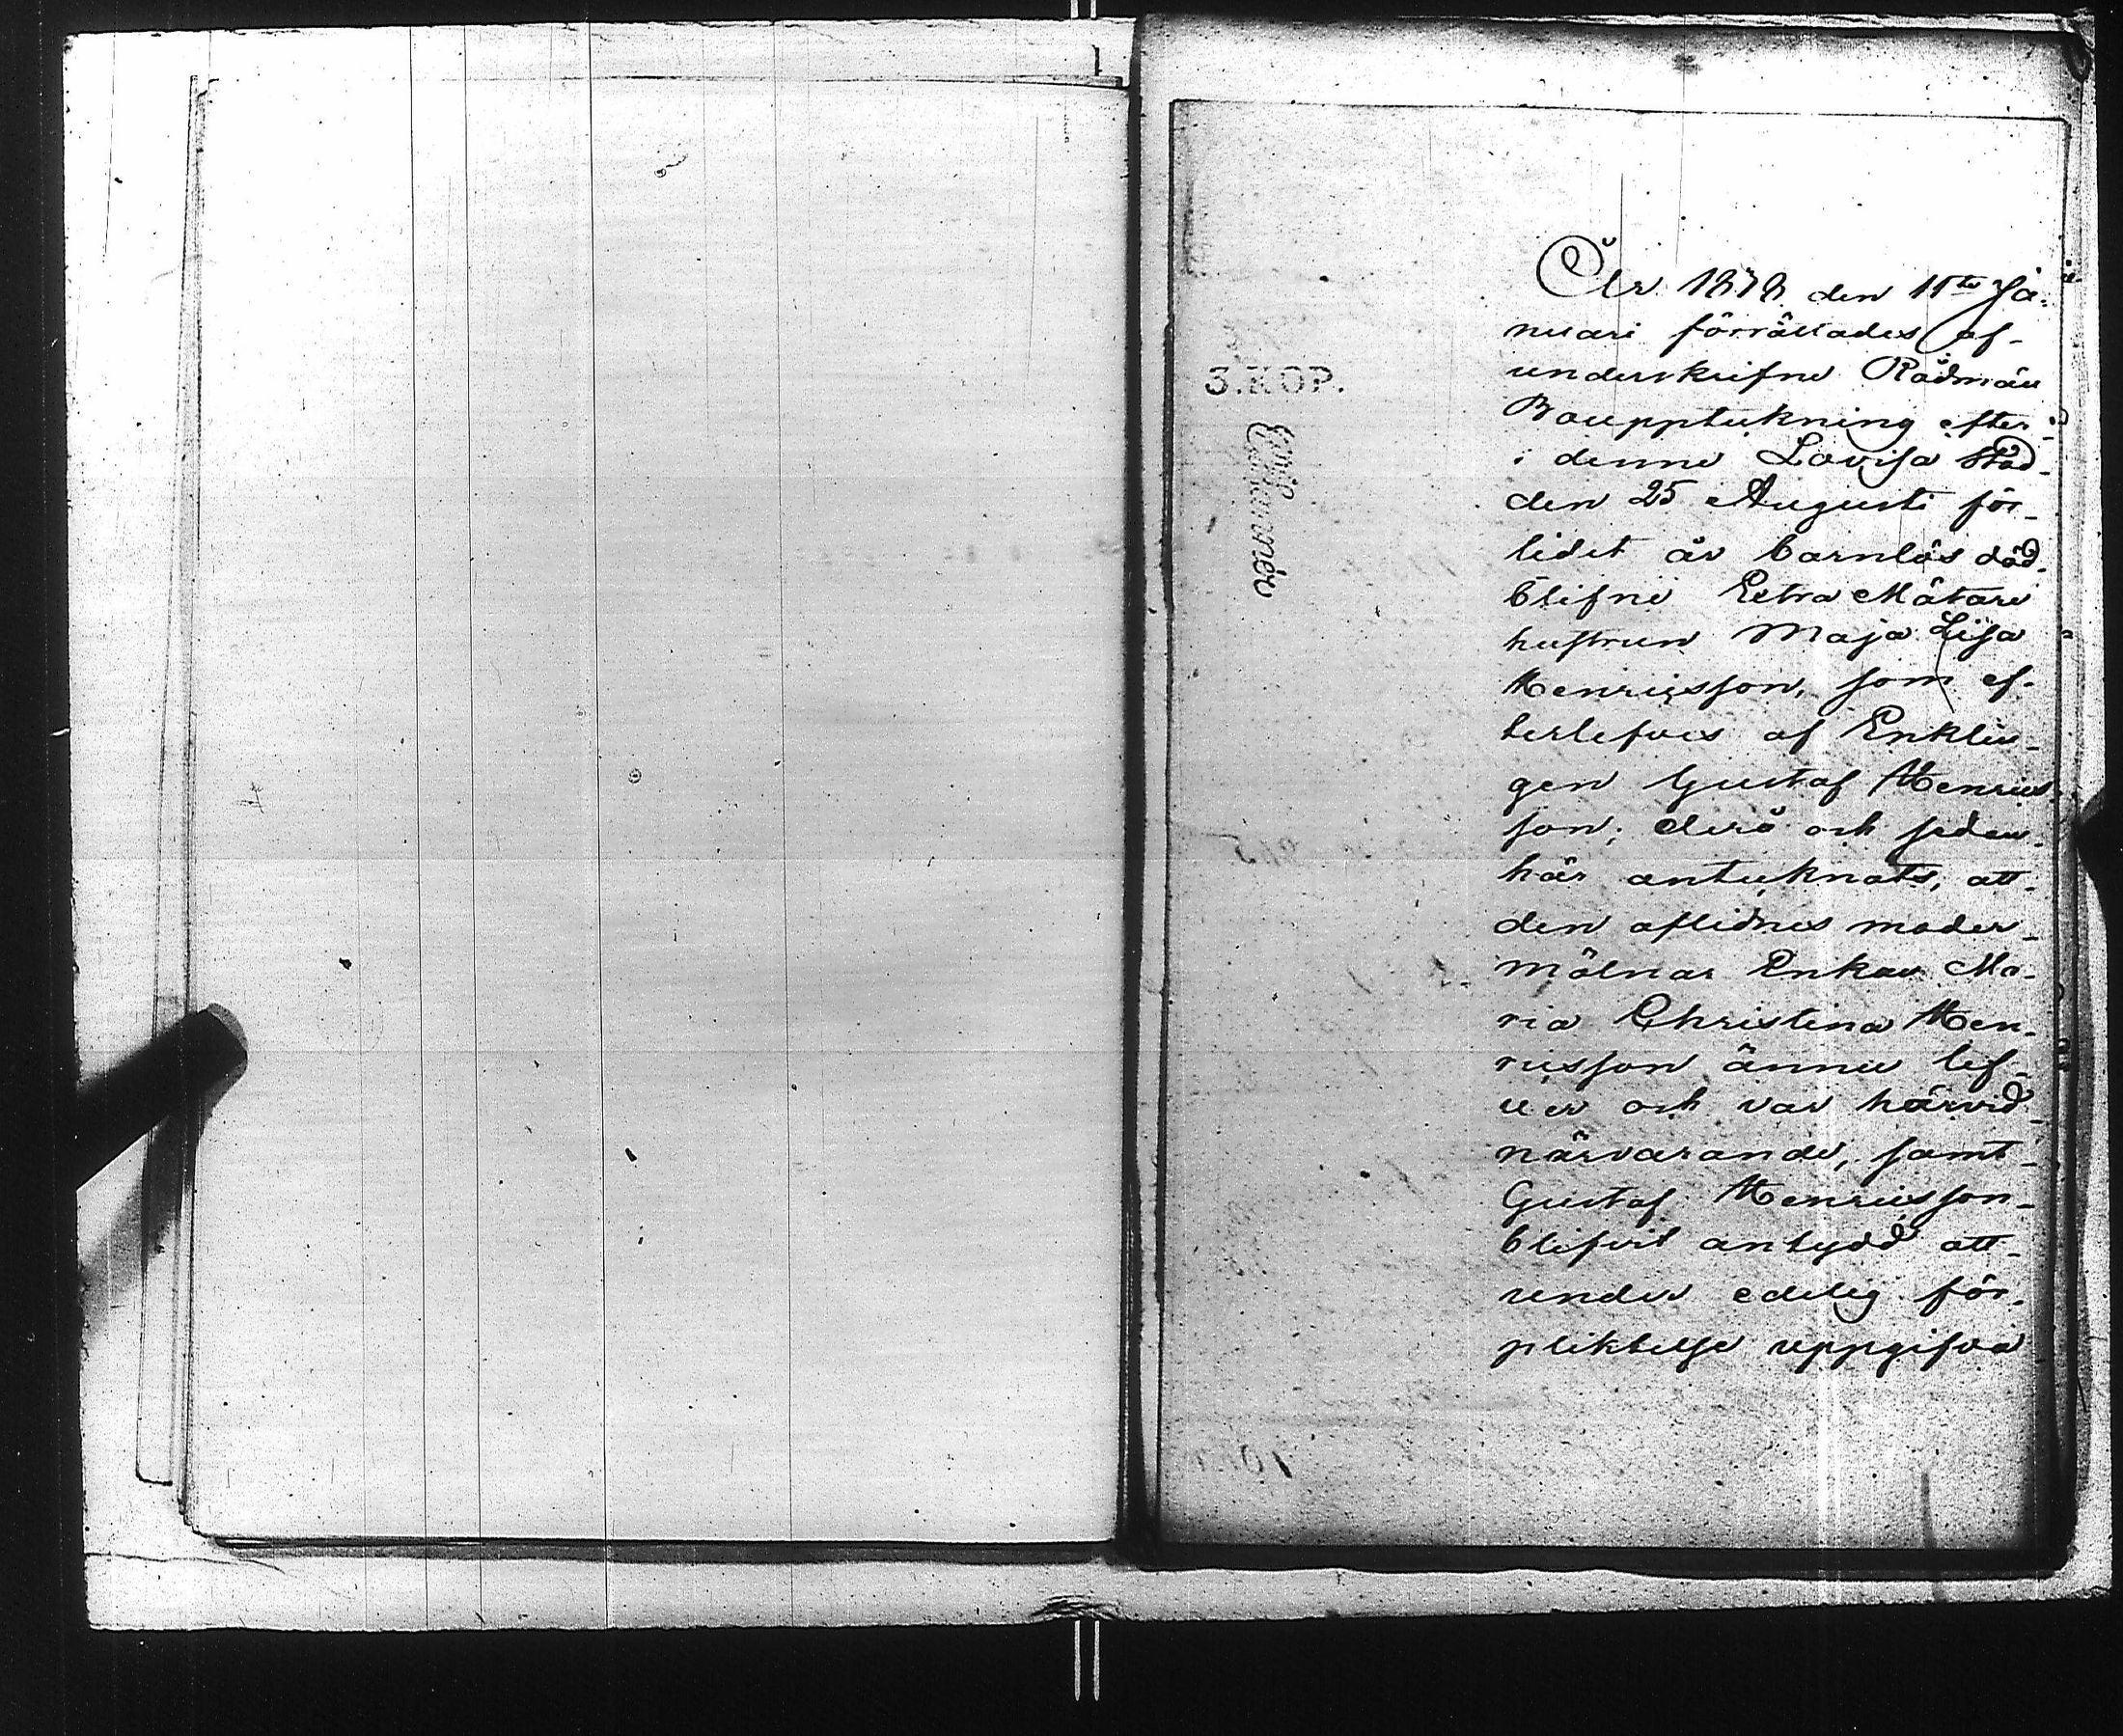 År 1878 den 11te Ja-
nuari förrättades af
underskrifne Rådmän
Bouppteckning efter
i denne Lovisa Stad
den 25 Augusti för-
lidet år barnlös död
blifne Extra Mätare
hustrun Maja Lisa
Henricsson, som ef-
terlefves af Enklin-
gen Gustaf Henrics
son; och
här antecknats, att
den aflidnes moder
mölnar Enkan Ma-
ria Christina Hen-
ricsson ännu lef-
ver och var härvid
närvarande, samt
Gustaf Henricsson
blifvit antydd att
under edelig för-
pliktelse uppgifva
3.KOP.